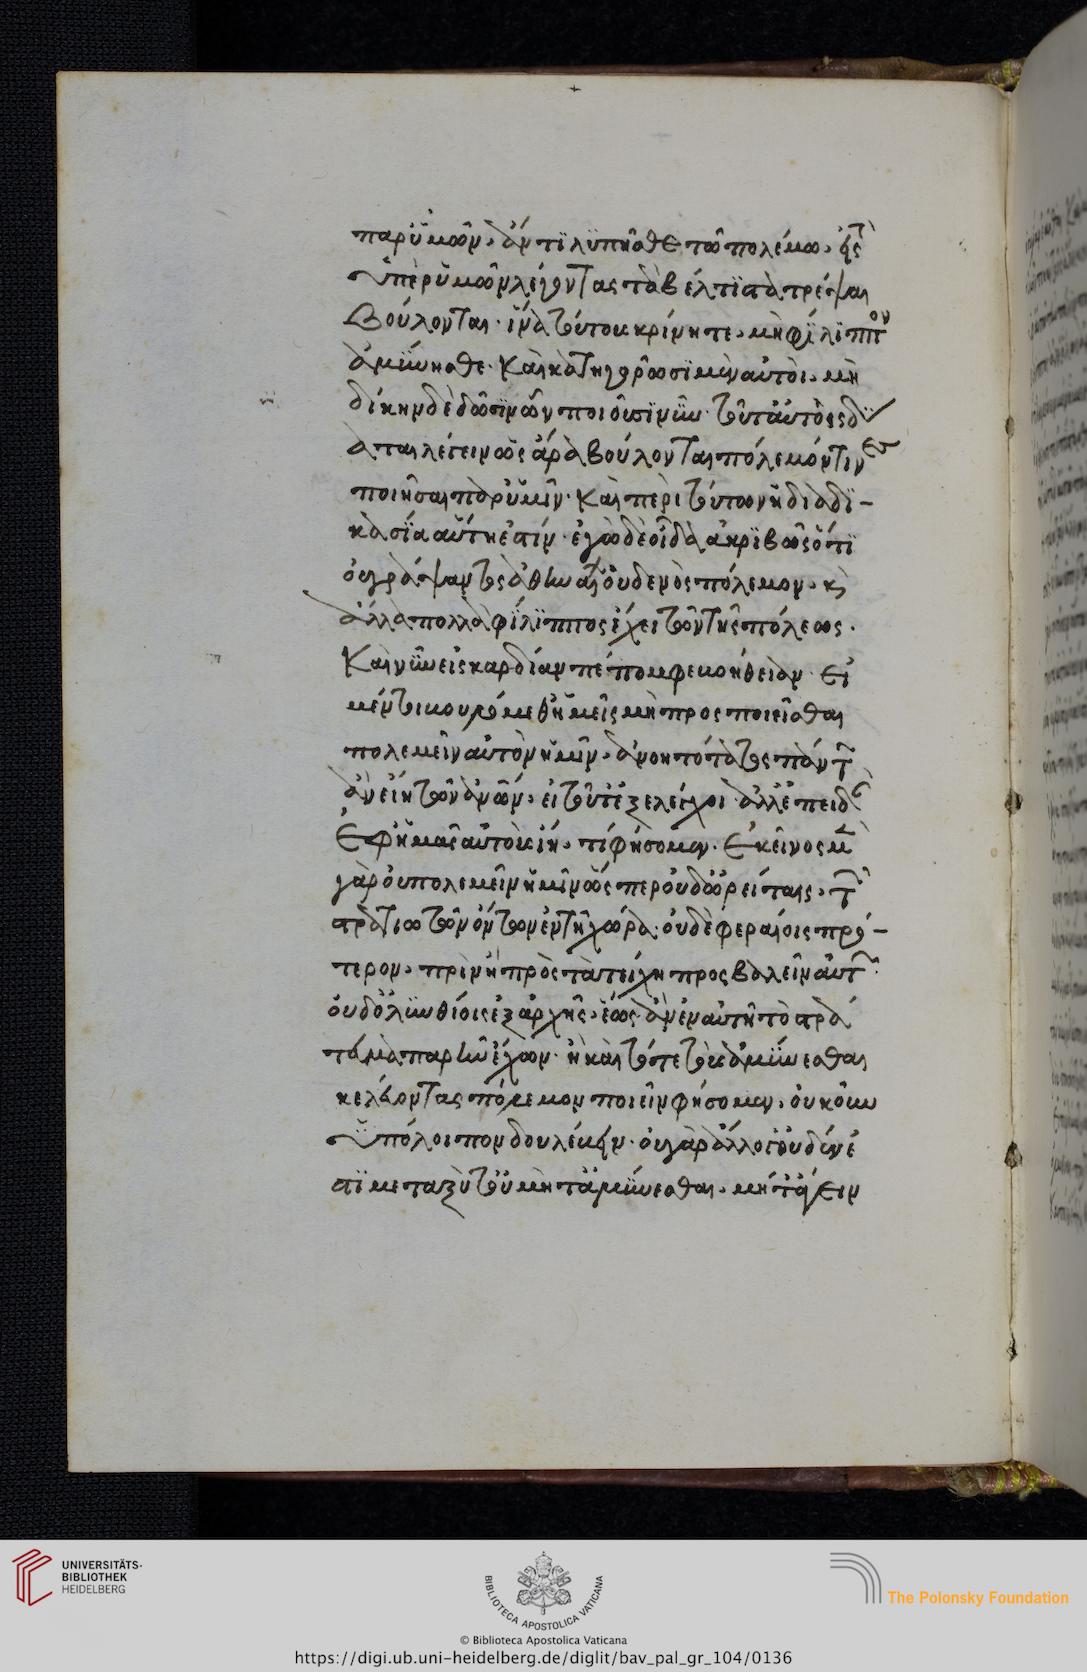 παρ' ὑμῶν, ἂν τι λυπῆσθε τῶ πολέμω, εἰς τοὺς
ὑπὲρ ὑμῶν λέγοντας τὰ βέλτιστα τρέψαι
βούλονται· ἵνα τούτους κρίνητε, μὴ φίλιππον
ἀμύνησθε· καὶ κατηγορῶσιν αὐτοὶ, μὴ
δίκην δὲ δῶσιν ὧν ποιοῦσι νῦν· τοῦτ' αὐτοῖς δύν
αται λέγειν ὡς ἄρα βούλονται πόλεμόν τινες
ποιῆσαι παρ' ὑμῖν· καὶ περὶ τούτων ἡ διαδι-
κασία αὕτη ἐστίν· ἐγὼ δὲ οἶδα ἀκριβῶς ὅτι
οὐ γράψαντος ἀθηναίων οὐδενὸς πόλεμον, καὶ
ἄλλα πολλὰ φίλιππος ἔχει τῶν τῆς πόλεως.
καὶ νῦν εἰς καρδίαν πέπομφε βοήθειαν· εἰ
μέντοι βουλόμεθ' ἡμεῖς μὴ προσποιεῖσθαι
πολεμεῖν αὐτὸν ἡμῖν, ἀνοητότατος πάντων
ἂν εἴη τῶν ὄντων, εἰ τοῦτ' ἐξελέγχοι· ἀλλ' ἐπειδὰν
ἐφ' ἡμᾶς αὐτοὺς ἴῃ, τί φήσομεν· ἐκεῖνος μὲν
γὰρ οὐ πολεμεῖν ἡμῖν ὥσπερ οὐδ' ὠρείταις, τῶν
στρατιωτῶν ὄντων ἐν τῇ χώρα· οὐδὲ φεραίοις πρό-
τερον, πρὶν ἢ πρὸς τὰ τείχη προσβαλεῖν αὐτῶν·
οὐδ' ὀλυνθίοις ἐξ ἀρχῆς, ἕως ἂν ἐν αὐτῇ τὸ στρά
τευμα παρῆν ἔχων· ἢ καὶ τότε τοὺς ἀμύνεσθαι
κελεύοντας πόλεμον ποιεῖν φήσομεν, οὐκοῦν
ὑπόλοιπον δουλεύειν· οὐ γὰρ ἄλλο γ' οὐδέν ἐ
στι μεταξὺ τοῦ μήτ' ἀμύνεσθαι, μήτ' ἄγειν
UNIVERSITÄTS-
BIBLIOTHEK
HEIDELBERG
BIBLIOTECA APOSTOLICA VATICANA
The Polonsky Foundation
© Biblioteca Apostolica Vaticana
https://digi.ub.uni-heidelberg.de/diglit/bav_pal_gr_104/0136